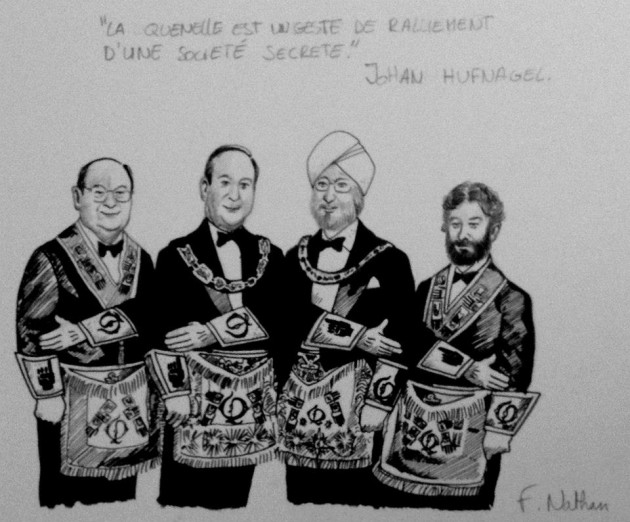 "LA QUENELLE EST UN GESTE DE RALLIEMENT
D'UNE SOCIETÉ SECRETE."
JOHAN HUFNAGEL.
F. Nathan